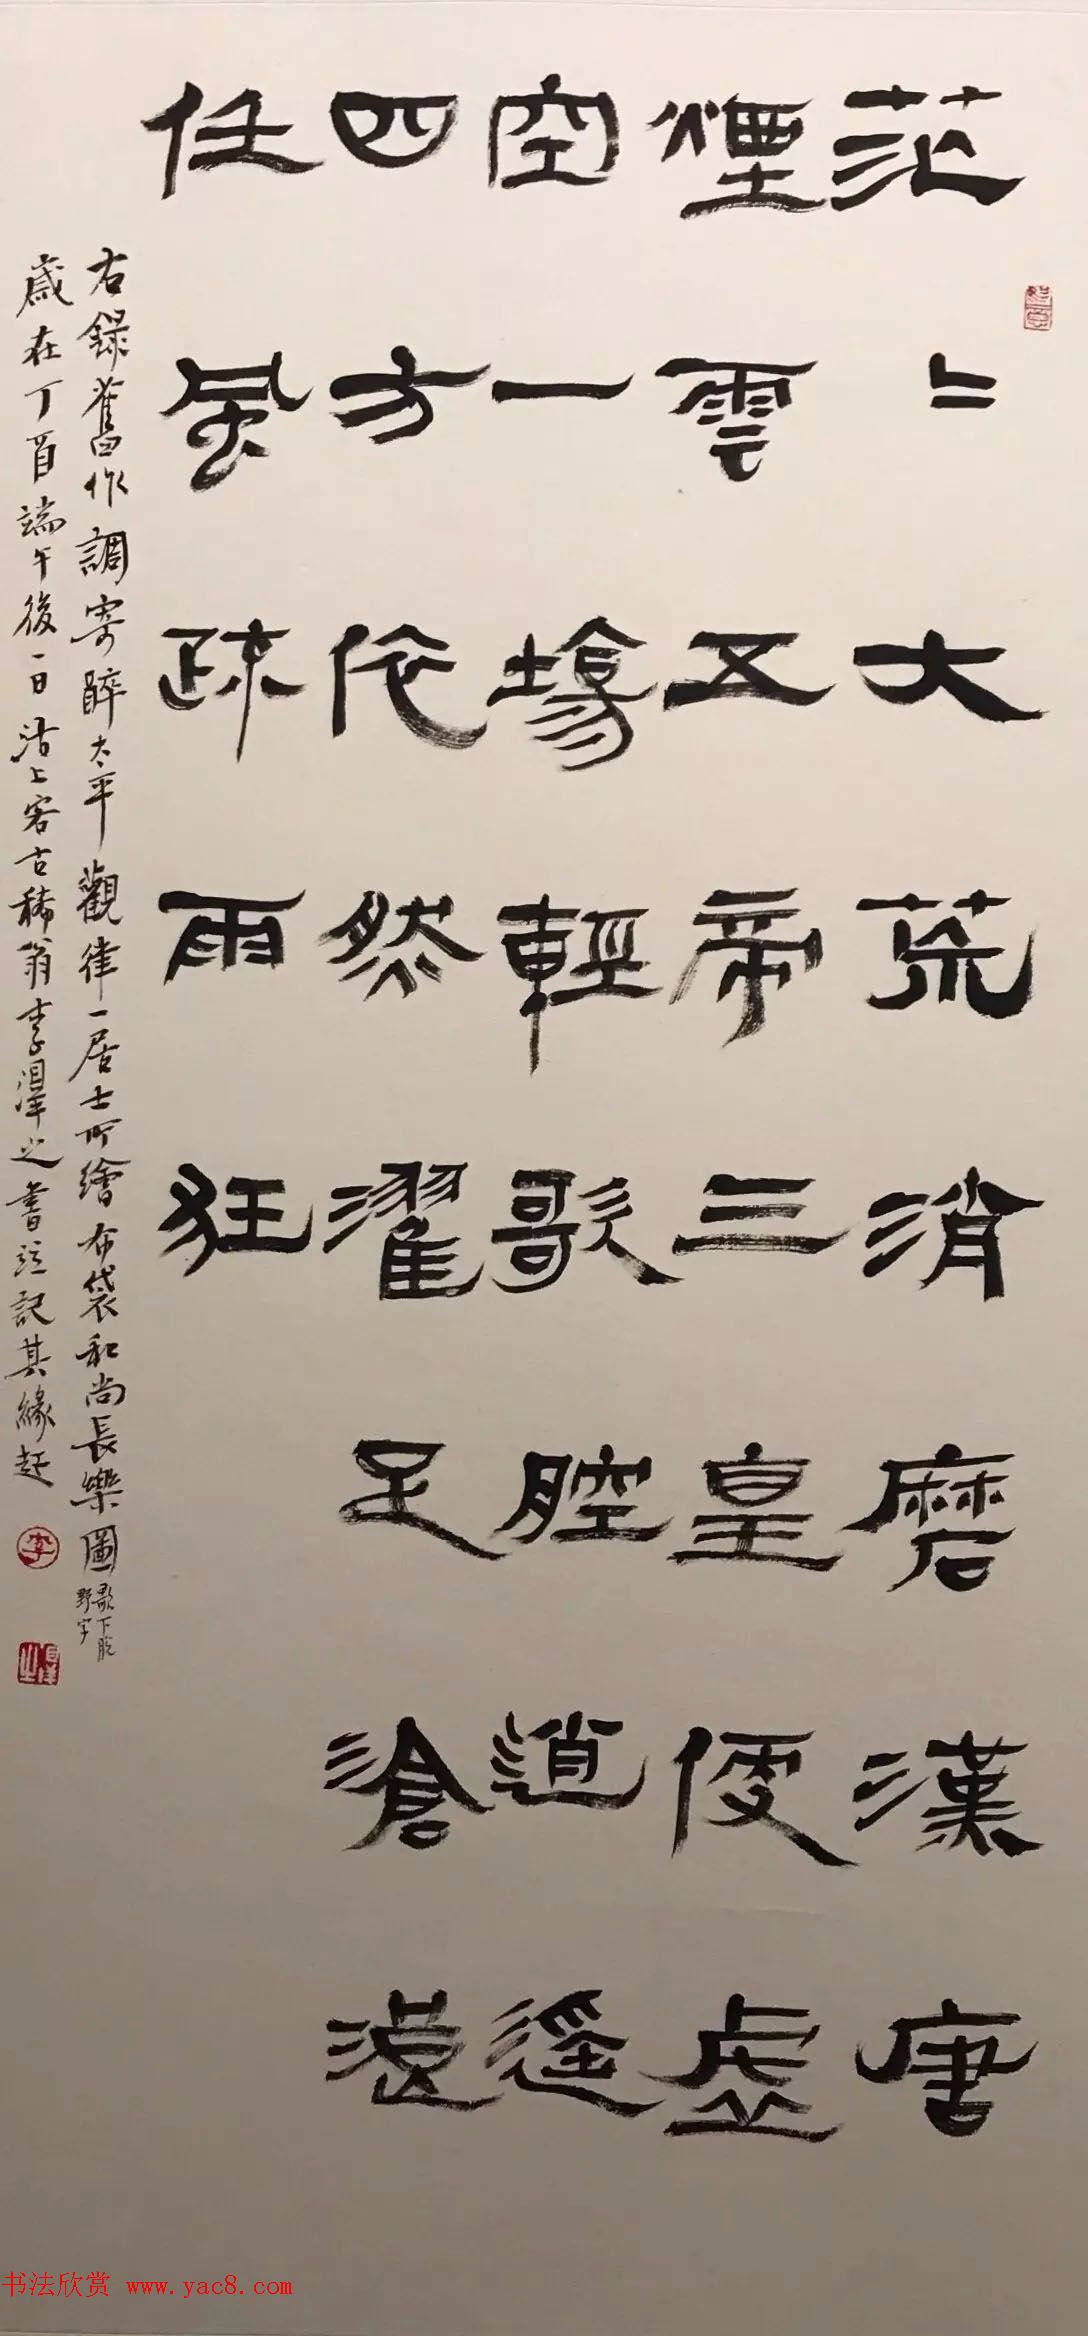 茫〻大荒消磨漢唐
煙雲五帝三皇便虛
空一場輕歌腔逍遥
四方依然濯足滄浪
任風疏雨狂
右錄舊作調寄醉太平觀律一居士所繪布袋和尚長樂圖
歌下脫
野字
歲在丁酉端午後一日沽上客古稀翁李澤之書竝記其緣起
李
书法欣赏 www.yac8.com